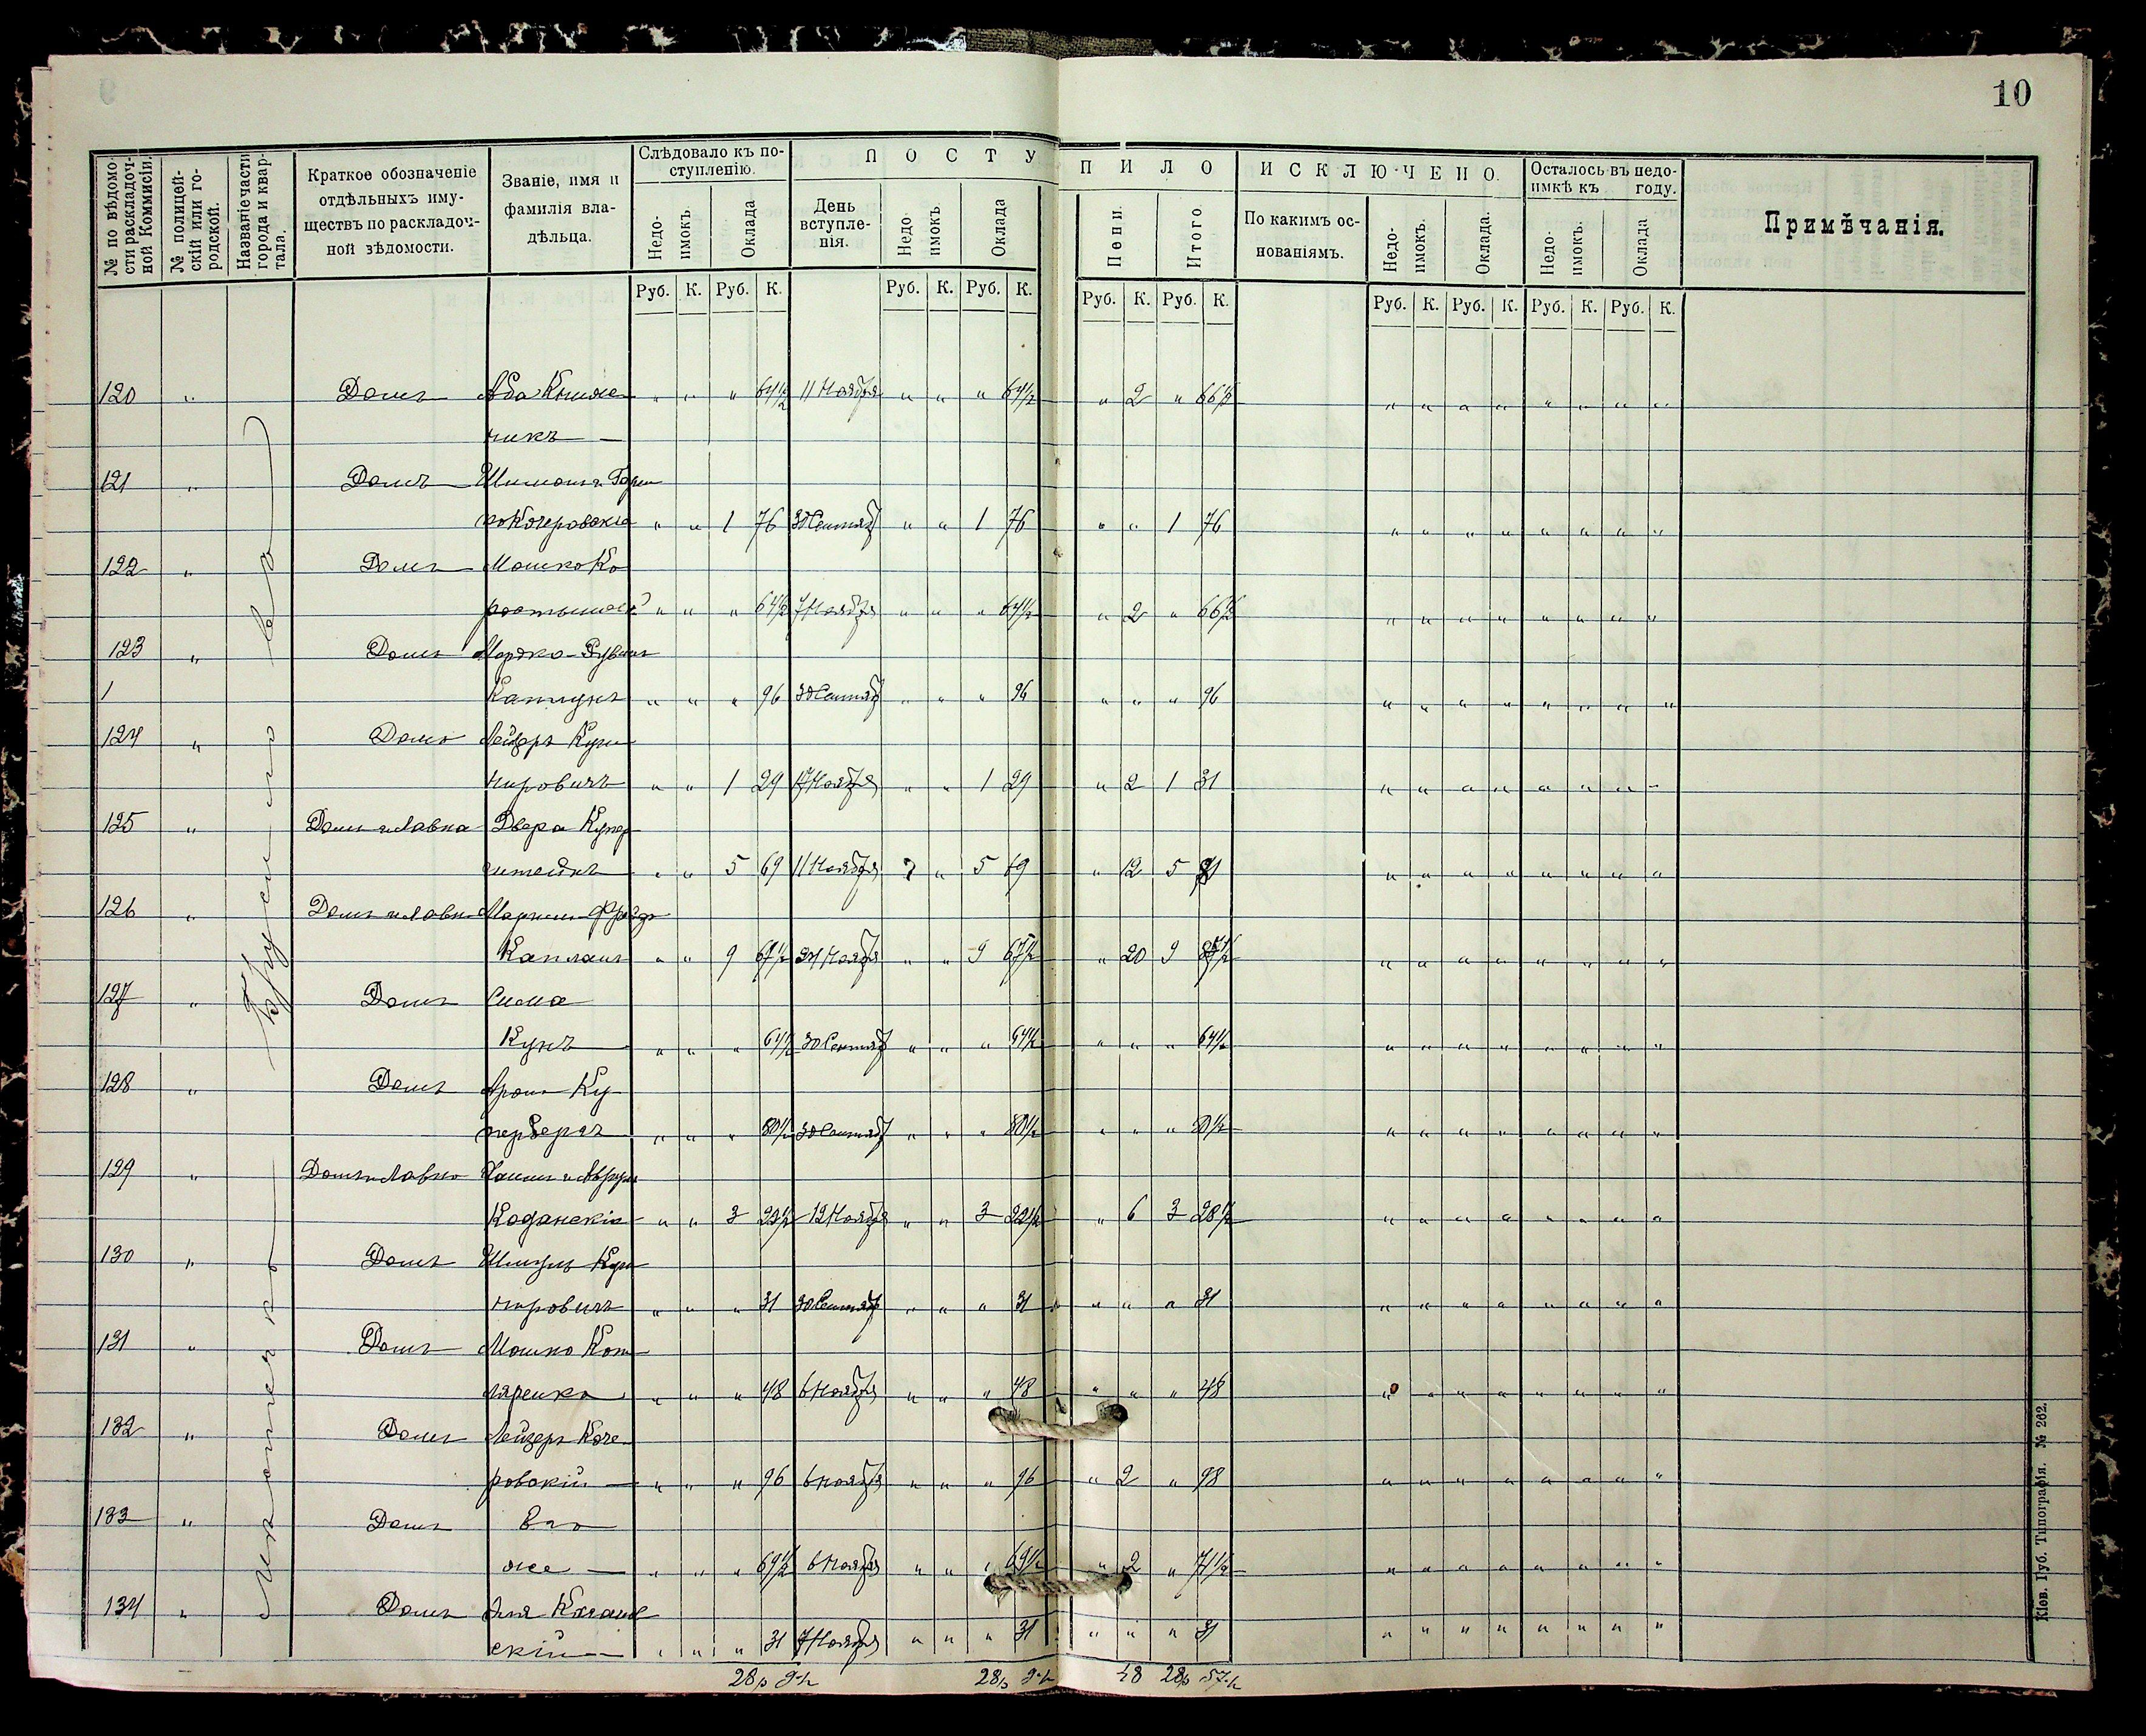 10
№ по вѣдомости раскладочной Коммисіи.
№ полицейскій или городской.
Названіе части города и квартала.
Краткое обозначеніе отдѣльныхъ имуществъ по раскладочной вѣдомости.
Званіе, имя и фамилія владѣльца.
Слѣдовало къ поступленію.
Недоимокъ. Оклада
П О С Т У П И Л О
День вступленія. Недоимокъ. Оклада Пени. Итого
И С К Л Ю Ч Е Н О.
По какимъ основаніямъ. Недоимокъ. Оклада.
Осталось въ недоимкѣ къ году.
Недоимокъ. Оклада
Примѣчанія.
Руб. К. Руб. К. Руб. К. Руб. К. Руб. К. Руб. К. Руб. К. Руб. К. Руб. К. Руб. К.
120 " Домъ Аба
чикъ " " " 64½ 11 Ноября " " " 64½ " 2 " 66½ " " " " " " " "
121 " Домъ
" " 1 76 30 Сентяб " " 1 76 " " 1 76 " " " " " " " "
122 " Домъ Мошко Ко
ростышевс " " " 64½ 7 Ноября " " " 64½ " 2 " 66½ " " " " " " " "
123 " Домъ Мордко-Рувинъ
1 Каплунъ " " " 96 30 Сентяб " " " 96 " " " 96 " " " " " " " "
124 " Домъ Лейзеръ Куш
нировичъ " " 1 29 17 Ноября " " 1 29 " 2 1 31 " " " " " " " "
125 " Домъ и Лавка Двера Купер
штейнъ " " 5 69 11 Ноября " " 5 69 " 12 5 81 " " " " " " " "
126 " Домъ и Лавк
Капланъ " " 9 67½ 24 Ноября " " 9 67½ " 20 9 87½ " " " " " " " "
127 " Домъ Сима
Кунъ " " " 64½ 30 Сентяб " " " 64½ " " " 64½ " " " " " " " "
128 " Домъ Аронъ Ку
пербергъ " " " 80½ 30 Сентяб " " " 80½ " " " 80½ " " " " " " " "
129 " Домъ и Лавка
Коданскіе " " 3 22½ 12 Ноября " " 3 22½ " 6 3 28½ " " " " " " " "
130 " Домъ Шмуль Куш
нировичъ " " " 31 30 Сентяб " " " 31 " " " 31 " " " " " " " "
131 " Домъ Мошко Кот
ляренко " " " 48 6 Ноября " " " 48 " " " 48 " " " " " " " "
132 " Домъ Лейзеръ Коче
ровскій " " " 96 6 Ноября " " " 96 " 2 " 98 " " " " " " " "
133 " Домъ Его
же " " " 69½ 6 Ноября " " " 69½ " 2 " 71½ " " " " " " " "
134 " Домъ
скій " " " 31 7 Ноября " " " 31 " " " 31 " " " " " " " "
28 р 9 к 28 р 9 к 48 28 р 57 к
Мѣстечко Брусилово
Кіев. Губ. Типографія. № 262.